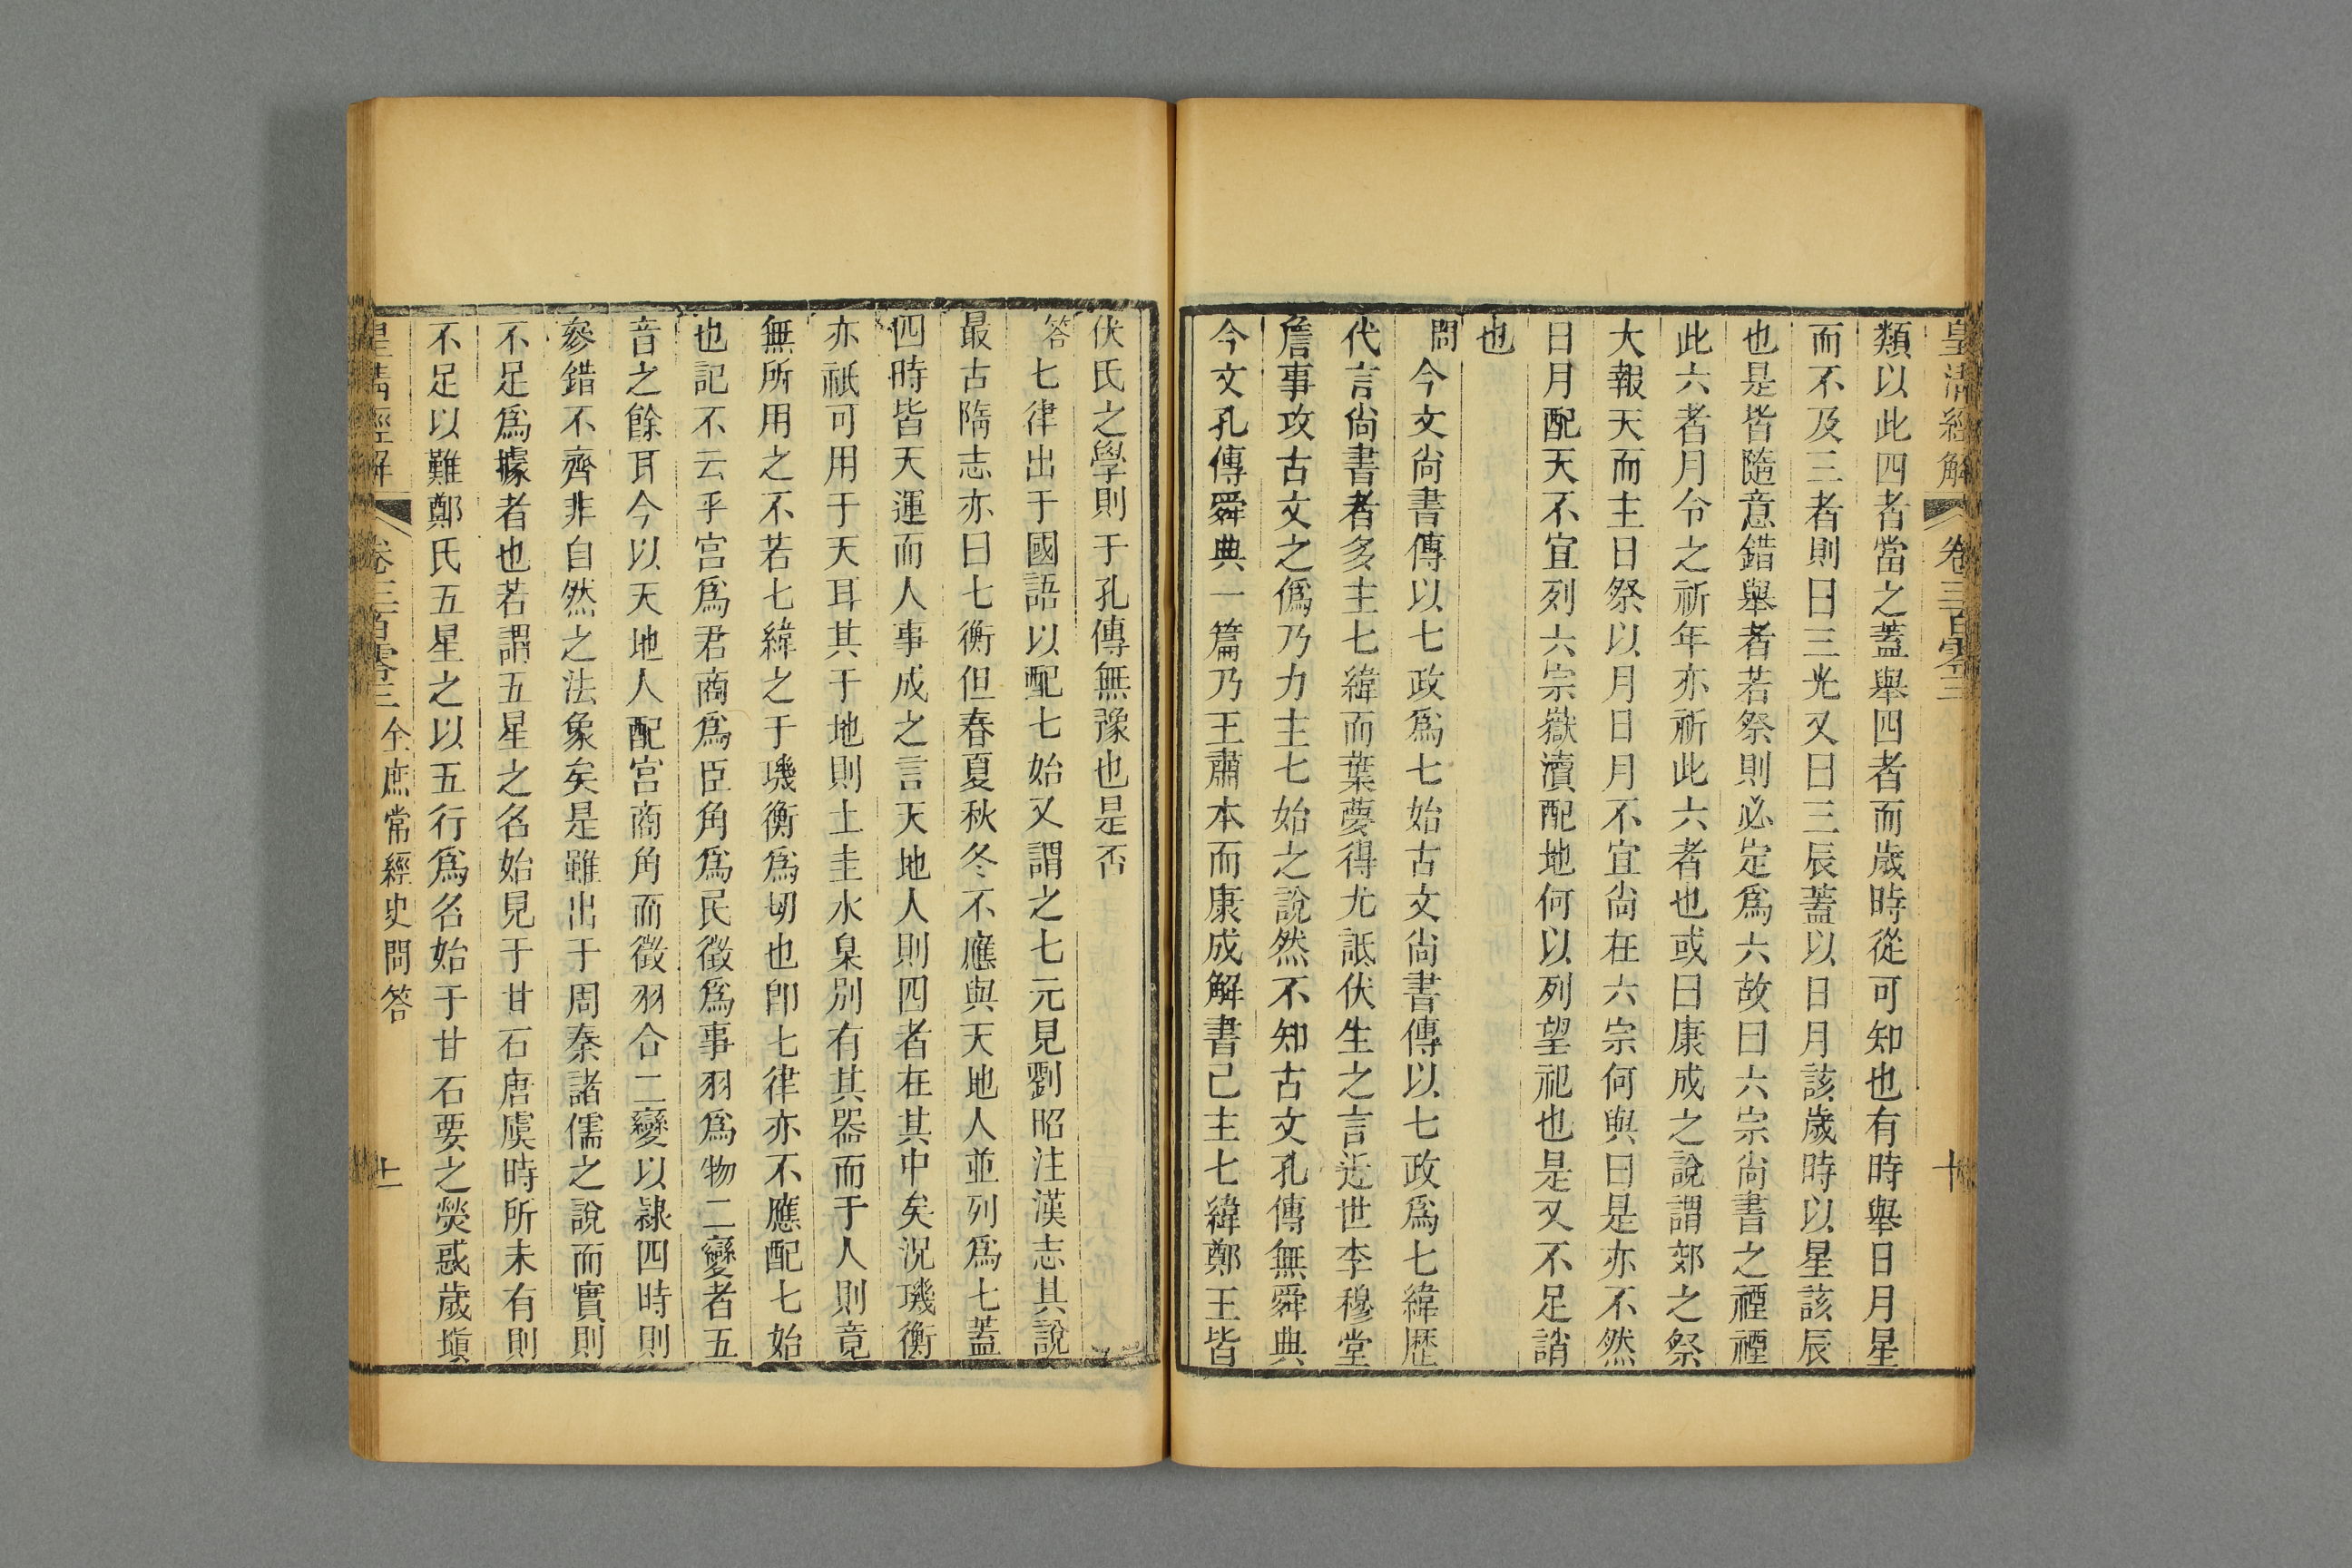 皇清經解 卷三百零三 十
類以此四者當之蓋舉四者而歲時從可知也有時舉日月星
而不及三者則曰三光又曰三辰蓋以日月該歲時以星該辰
也是皆隨意錯舉者若祭則必定爲六故曰六宗尙書之禋禋
此六者月令之祈年亦祈此六者也或曰康成之說謂郊之祭
大報天而主日祭以月日月不宜尙在六宗何與曰是亦不然
日月配天不宜列六宗嶽瀆配地何以列望祀也是又不足誚
也
問今文尙書傳以七政爲七始古文尙書傳以七政爲七緯歷
代言尙書者多主七緯而葉夢得尤詆伏生之言近世李穆堂
詹事攻古文之僞乃力主七始之說然不知古文孔傳無舜典
今文孔傳舜典一篇乃王肅本而康成解書已主七緯鄭王皆
伏氏之學則于孔傳無豫也是否
答七律出于國語以配七始又謂之七元見劉昭注漢志其說
最古隋志亦曰七衡但春夏秋冬不應與天地人並列爲七蓋
四時皆天運而人事成之言天地人則四者在其中矣況璣衡
亦祇可用于天耳其于地則土圭水臬別有其器而于人則竟
無所用之不若七緯之于璣衡爲切也卽七律亦不應配七始
也記不云乎宮爲君商爲臣角爲民徵爲事羽爲物二變者五
音之餘耳今以天地人配宮商角而徵羽合二變以隷四時則
參錯不齊非自然之法象矣是雖出于周秦諸儒之說而實則
不足爲據者也若謂五星之名始見于甘石唐虞時所未有則
不足以難鄭氏五星之以五行爲名始于甘石要之熒惑歲塡
皇清經解 卷三百零三 全庶常經史問答 十一